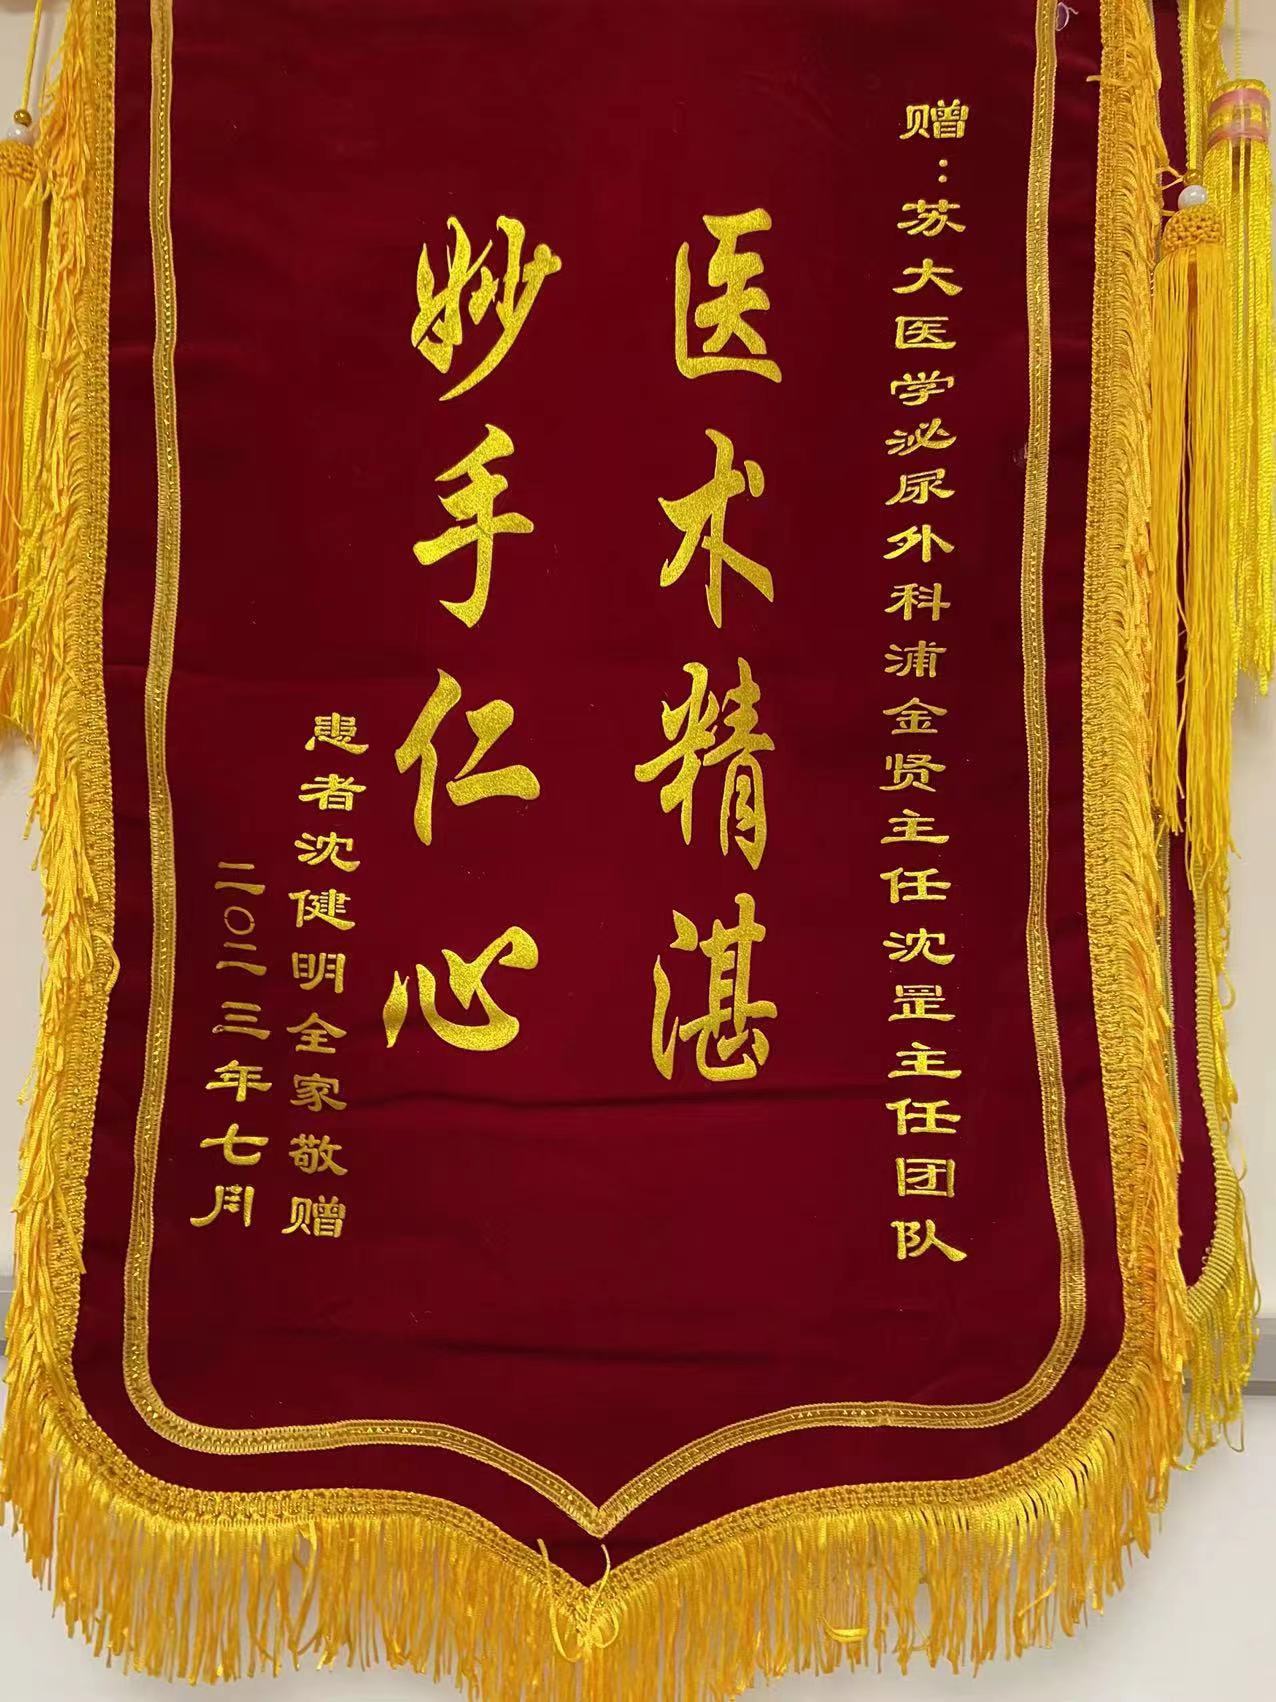 赠：苏大医学泌尿外科浦金贤主任沈罡主任团队
医术精湛
妙手仁心
患者沈健明全家敬赠
二〇二三年七月